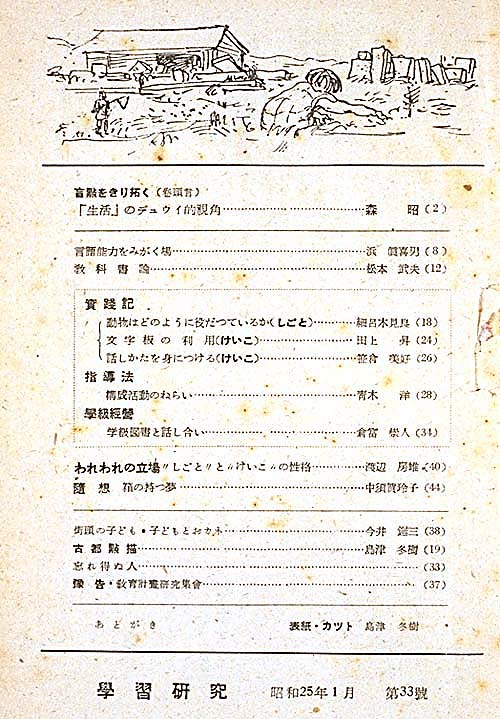 盲點をきり拓く（卷頭言）
「生活」のデュウイ的視角……森　昭（2）
言語能力をみがく場……浜　眞喜男（8）
敎科書論……松本　武夫（12）
實踐記
動物はどのように役だつているか（しごと）……細呂木見良（18）
文字板の利用（けいこ）……田上　昇（24）
話しかたを身につける（けいこ）……笹倉　美好（26）
指導法
構成活動のねらい……青木　洋（28）
學級經營
学級図書と話し合い……倉富　崇人（34）
われわれの立場 〃しごと〃と〃けいこ〃の性格……渡辺　房雄（40）
隨想　箱の持つ夢……中須賀玲子（44）
街頭の子ども・子どもとおカネ……今井　鑑三（38）
古都點描……島津　冬樹（19）
忘れ得ぬ人……（33）
豫告・敎育計畫硏究集會……（37）
あとがき　表紙・カット　島津　冬樹
學習硏究　昭和25年1月　第33號